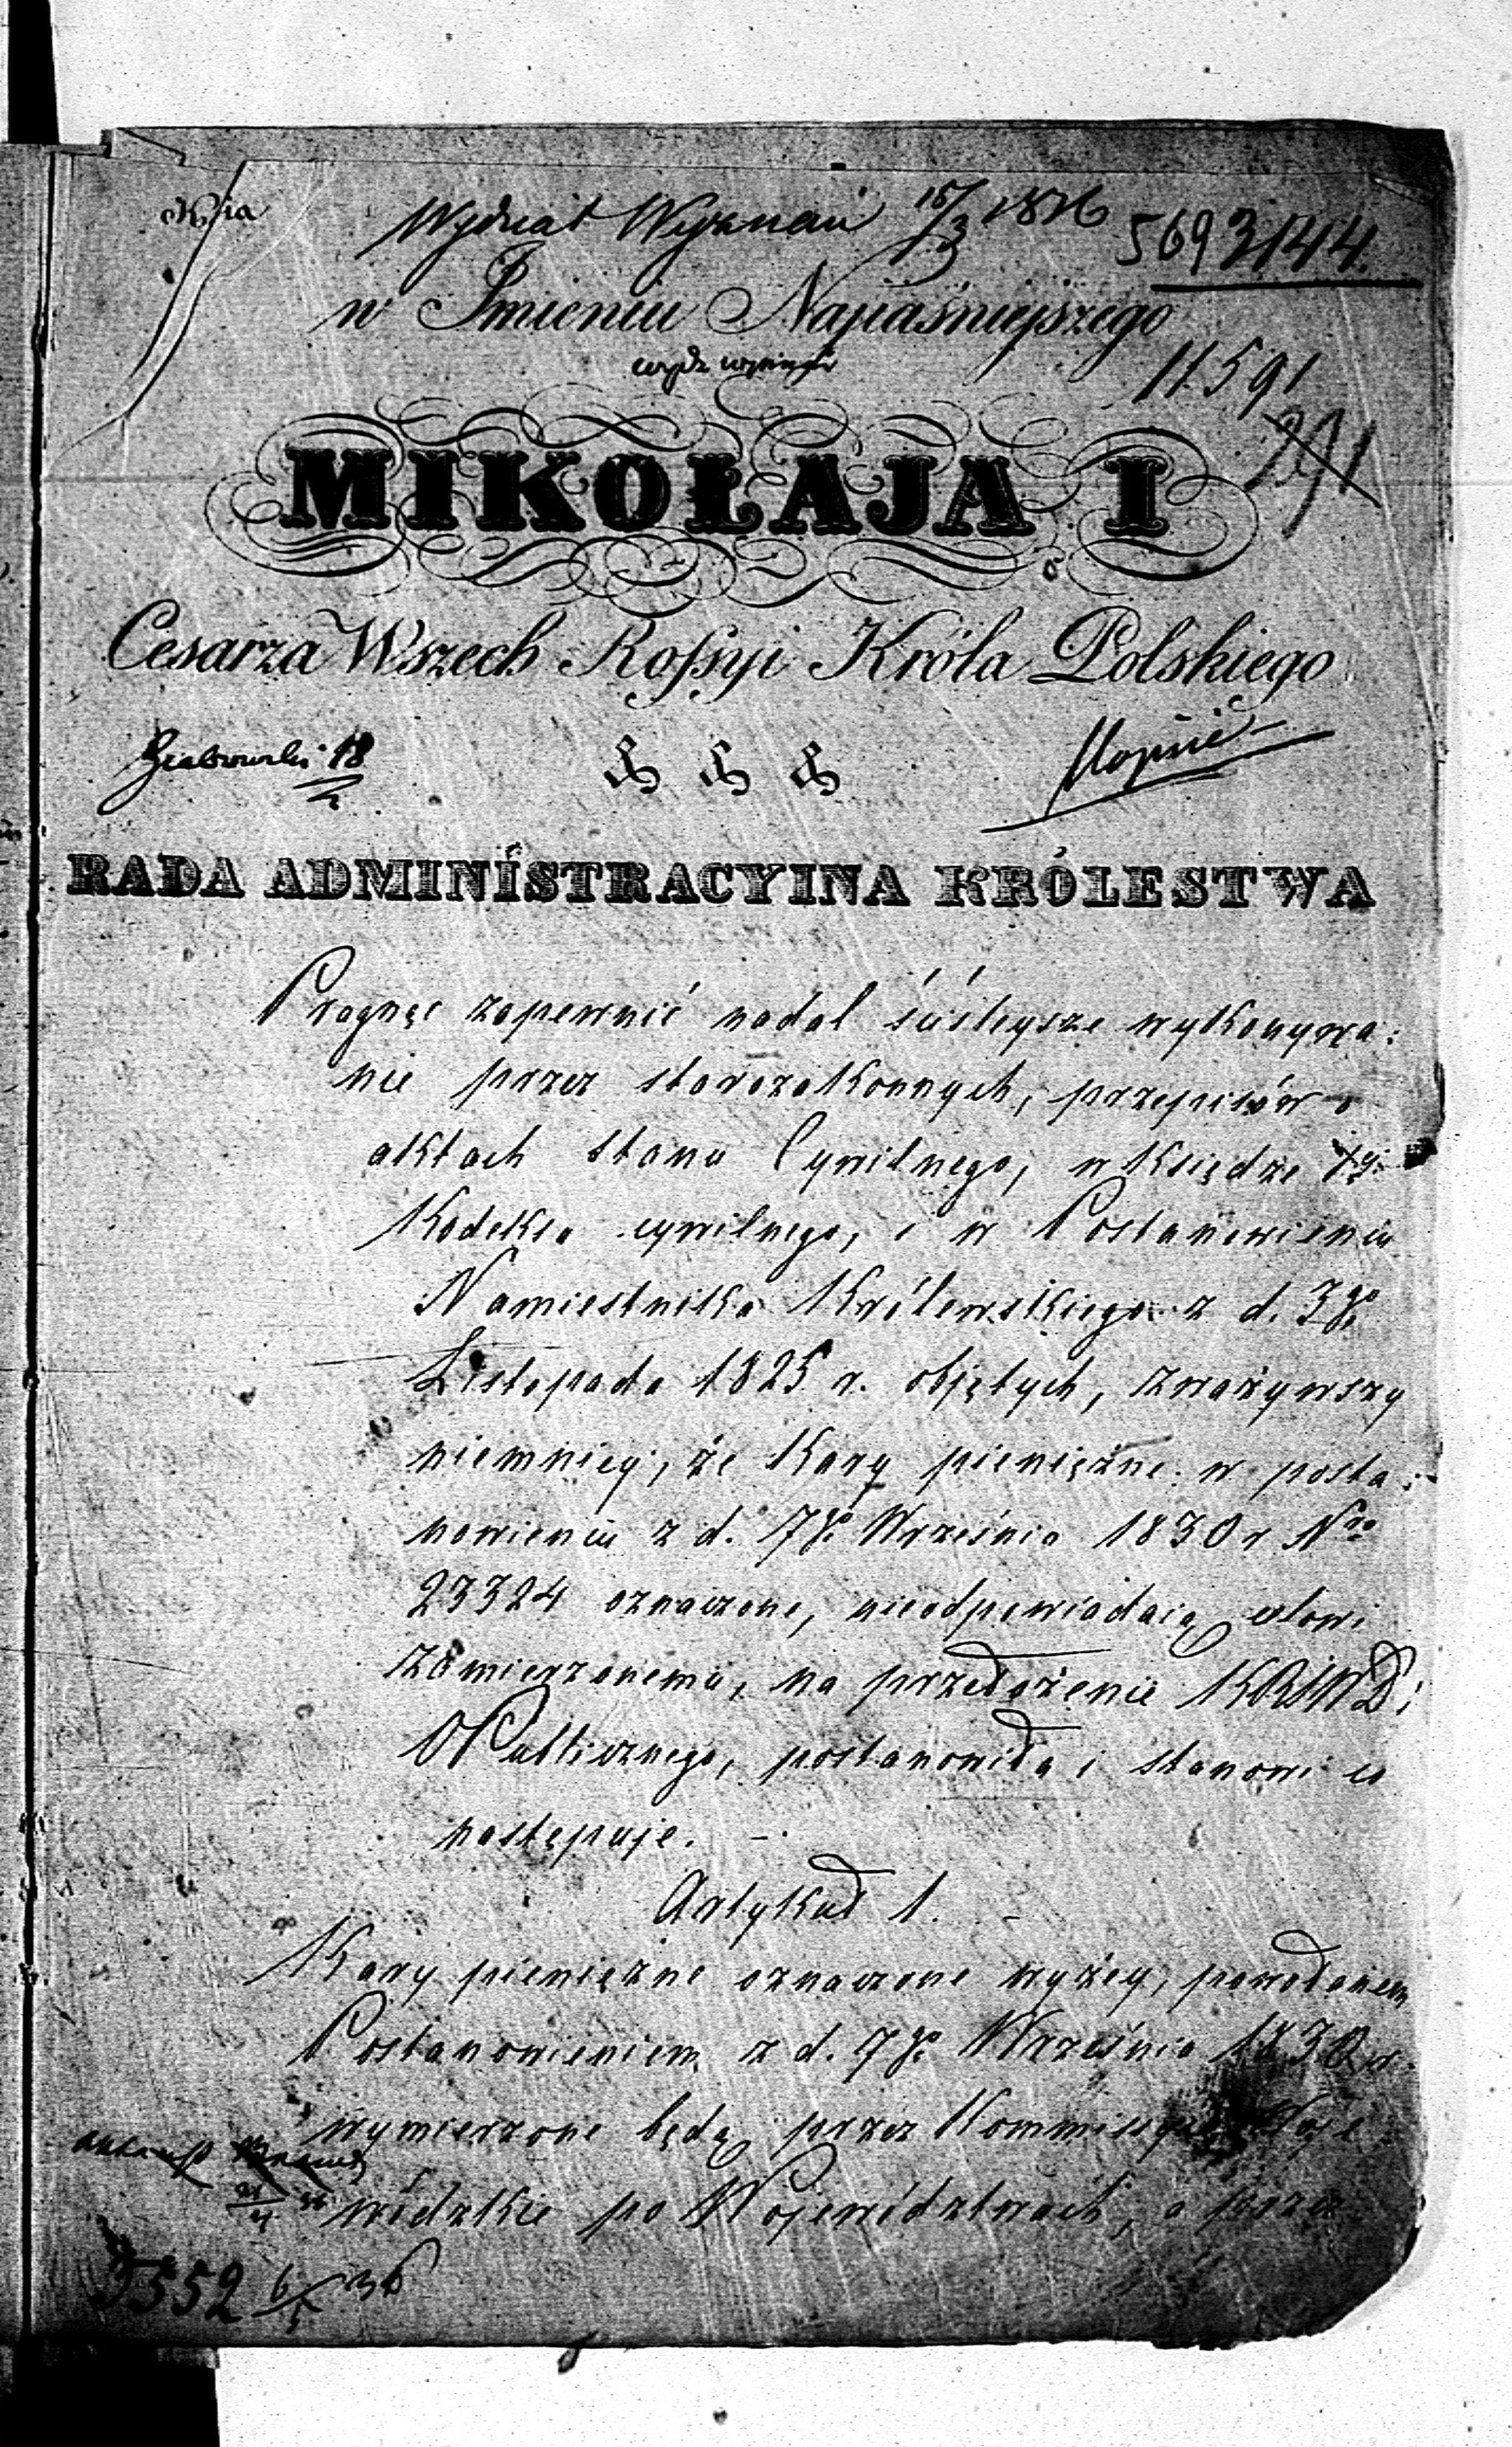 Wydział Wyznań 15/3 1836
569 3144.
w Imieniu Najiaśniejszego
wydz wyznań
11591
291
MIKOŁAJA I
Cesarza Wszech Rossyi Króla Polskiego
18
Kopiie
RADA ADMINISTRACYINA KRÓLESTWA
Pragnąc zapewnić nadal ściśleysze wykonywa:
nie przez starozakonnych, przepisów o
aktach stanu Cywilnego, w Księdze Iéj
Kodeksu cywilnego, i w Postanowieniu
Namiestnika Królewskiego z d. 3go
Listopada 1825 r. objętych, zważywszy
niemniey, że Kary pieniężne w posta:
nowieniu z d. 7go Września 1830 r No
23324 oznaczone, nieodpowiadaią celowi
zamierzonemu, na przedłożenie KRSWD i
OPublicznego, postanowiła i stanowi co
następuje. –
Artykuł 1. –
Kary pieniężne oznaczone wyżey, powołanem
Postanowieniem z d. 7go Września 1830 r.
wymierzone będą przez Kommissye Woje
wódzkie po Województwach, a przez
3552 6/5 36